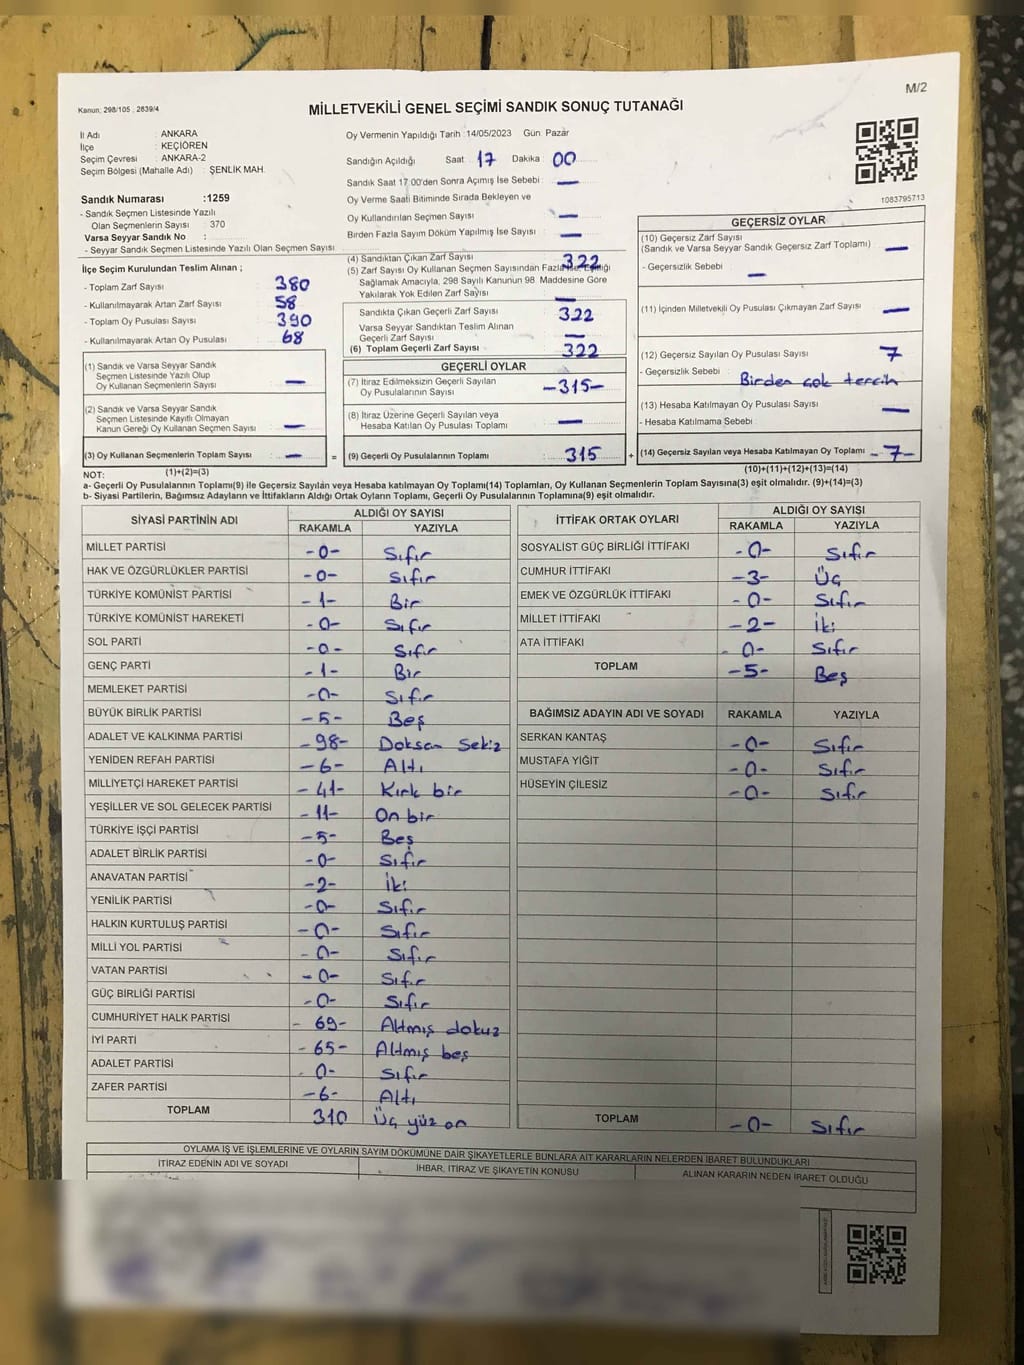 M/2
Kanun: 298/105 , 2839/4
MİLLETVEKİLİ GENEL SEÇİMİ SANDIK SONUÇ TUTANAĞI
İl Adı : ANKARA
İlçe : KEÇİÖREN
Seçim Çevresi : ANKARA-2
Seçim Bölgesi (Mahalle Adı) : ŞENLİK MAH.
Sandık Numarası :1259
- Sandık Seçmen Listesinde Yazılı
Olan Seçmenlerin Sayısı : 370
Varsa Seyyar Sandık No :
- Seyyar Sandık Seçmen Listesinde Yazılı Olan Seçmen Sayısı
Oy Vermenin Yapıldığı Tarih :14/05/2023 Gün: Pazar
Sandığın Açıldığı Saat 17 Dakika 00
Sandık Saat 17:00'den Sonra Açımış İse Sebebi : —
Oy Verme Saati Bitiminde Sırada Bekleyen ve
Oy Kullandırılan Seçmen Sayısı : —
Birden Fazla Sayım Döküm Yapılmış İse Sayısı : —
1083795713
İlçe Seçim Kurulundan Teslim Alınan ;
- Toplam Zarf Sayısı : 380
- Kullanılmayarak Artan Zarf Sayısı : 58
- Toplam Oy Pusulası Sayısı : 390
- Kullanılmayarak Artan Oy Pusulası : 68
(1) Sandık ve Varsa Seyyar Sandık
Seçmen Listesinde Yazılı Olup
Oy Kullanan Seçmenlerin Sayısı : —
(2) Sandık ve Varsa Seyyar Sandık
Seçmen Listesinde Kayıtlı Olmayan
Kanun Gereği Oy Kullanan Seçmen Sayısı : —
(3) Oy Kullanan Seçmenlerin Toplam Sayısı : —
(4) Sandıktan Çıkan Zarf Sayısı : 322
(5) Zarf Sayısı Oy Kullanan Seçmen Sayısından Fazla İse, Eşitliği
Sağlamak Amacıyla, 298 Sayılı Kanunun 98 Maddesine Göre
Yakılarak Yok Edilen Zarf Sayısı : —
Sandıkta Çıkan Geçerli Zarf Sayısı : 322
Varsa Seyyar Sandıktan Teslim Alınan
Geçerli Zarf Sayısı : —
(6) Toplam Geçerli Zarf Sayısı : 322
GEÇERLİ OYLAR
(7) İtiraz Edilmeksizin Geçerli Sayılan
Oy Pusulalarının Sayısı : -315-
(8) İtiraz Üzerine Geçerli Sayılan veya
Hesaba Katılan Oy Pusulası Toplamı : —
= (9) Geçerli Oy Pusulalarının Toplamı : 315
GEÇERSİZ OYLAR
(10) Geçersiz Zarf Sayısı
(Sandık ve Varsa Seyyar Sandık Geçersiz Zarf Toplamı) : —
- Geçersizlik Sebebi : —
(11) İçinden Milletvekili Oy Pusulası Çıkmayan Zarf Sayısı : —
(12) Geçersiz Sayılan Oy Pusulası Sayısı : 7
- Geçersizlik Sebebi : Birden çok tercih
(13) Hesaba Katılmayan Oy Pusulası Sayısı : —
- Hesaba Katılmama Sebebi :
+ (14) Geçersiz Sayılan veya Hesaba Katılmayan Oy Toplamı : -7-
NOT: (1)+(2)=(3) (10)+(11)+(12)+(13)=(14)
a- Geçerli Oy Pusulalarının Toplamı(9) ile Geçersiz Sayılan veya Hesaba katılmayan Oy Toplamı(14) Toplamları, Oy Kullanan Seçmenlerin Toplam Sayısına(3) eşit olmalıdır. (9)+(14)=(3)
b- Siyasi Partilerin, Bağımsız Adayların ve İttifakların Aldığı Ortak Oyların Toplamı, Geçerli Oy Pusulalarının Toplamına(9) eşit olmalıdır.
SİYASİ PARTİNİN ADI ALDIĞI OY SAYISI
RAKAMLA YAZIYLA
MİLLET PARTİSİ -0- Sıfır
HAK VE ÖZGÜRLÜKLER PARTİSİ -0- Sıfır
TÜRKİYE KOMÜNİST PARTİSİ -1- Bir
TÜRKİYE KOMÜNİST HAREKETİ -0- Sıfır
SOL PARTİ -0- Sıfır
GENÇ PARTİ -1- Bir
MEMLEKET PARTİSİ -0- Sıfır
BÜYÜK BİRLİK PARTİSİ -5- Beş
ADALET VE KALKINMA PARTİSİ -98- Doksan Sekiz
YENİDEN REFAH PARTİSİ -6- Altı
MİLLİYETÇİ HAREKET PARTİSİ -41- Kırk bir
YEŞİLLER VE SOL GELECEK PARTİSİ -11- On bir
TÜRKİYE İŞÇİ PARTİSİ -5- Beş
ADALET BİRLİK PARTİSİ -0- Sıfır
ANAVATAN PARTİSİ -2- İki
YENİLİK PARTİSİ -0- Sıfır
HALKIN KURTULUŞ PARTİSİ -0- Sıfır
MİLLİ YOL PARTİSİ -0- Sıfır
VATAN PARTİSİ -0- Sıfır
GÜÇ BİRLİĞİ PARTİSİ -0- Sıfır
CUMHURİYET HALK PARTİSİ -69- Altmış dokuz
İYİ PARTİ -65- Altmış beş
ADALET PARTİSİ -0- Sıfır
ZAFER PARTİSİ -6- Altı
TOPLAM 310 Üç yüz on
İTTİFAK ORTAK OYLARI ALDIĞI OY SAYISI
RAKAMLA YAZIYLA
SOSYALİST GÜÇ BİRLİĞİ İTTİFAKI -0- Sıfır
CUMHUR İTTİFAKI -3- Üç
EMEK VE ÖZGÜRLÜK İTTİFAKI -0- Sıfır
MİLLET İTTİFAKI -2- İki
ATA İTTİFAKI -0- Sıfır
TOPLAM -5- Beş
BAĞIMSIZ ADAYIN ADI VE SOYADI RAKAMLA YAZIYLA
SERKAN KANTAŞ -0- Sıfır
MUSTAFA YİĞİT -0- Sıfır
HÜSEYİN ÇİLESİZ -0- Sıfır
TOPLAM -0- Sıfır
OYLAMA İŞ VE İŞLEMLERİNE VE OYLARIN SAYIM DÖKÜMÜNE DAİR ŞİKAYETLERLE BUNLARA AİT KARARLARIN NELERDEN İBARET BULUNDUKLARI
İTİRAZ EDENİN ADI VE SOYADI İHBAR, İTİRAZ VE ŞİKAYETİN KONUSU ALINAN KARARIN NEDEN İBARET OLDUĞU